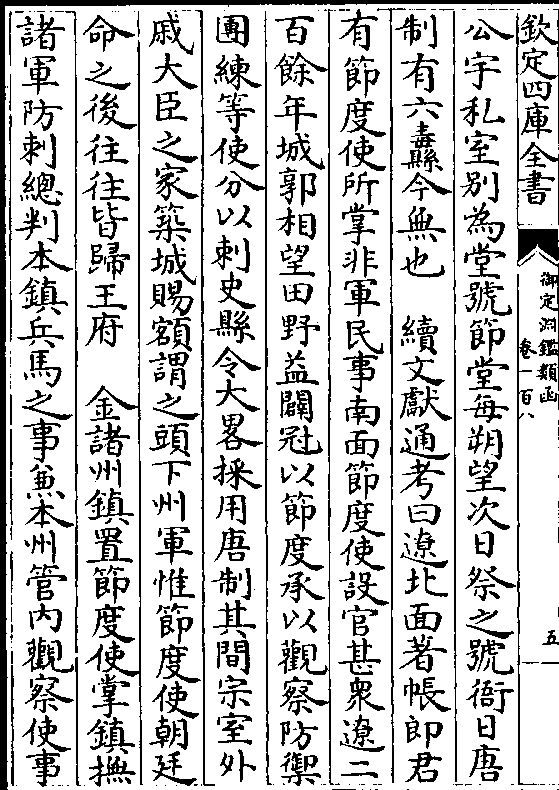 欽定四庫全書
御定淵鑑類函
卷一百八
五
公宇私室别為堂號節堂每朔望次日祭之號衙日唐
制有六纛縣今無也　續文獻通考曰遼北面著帳郎君
有節度使所掌非軍民事南面節度使設官甚衆遼二
百餘年城郭相望田野益闢冠以節度承以觀察防禦
團練等使分以刺史縣令大畧採用唐制其間宗室外
戚大臣之家築城賜額謂之頭下州軍惟節度使朝廷
命之後往往皆歸王府　金諸州鎮置節度使掌鎮撫
諸軍防刺總判本鎮兵馬之事兼本州管内觀察使事